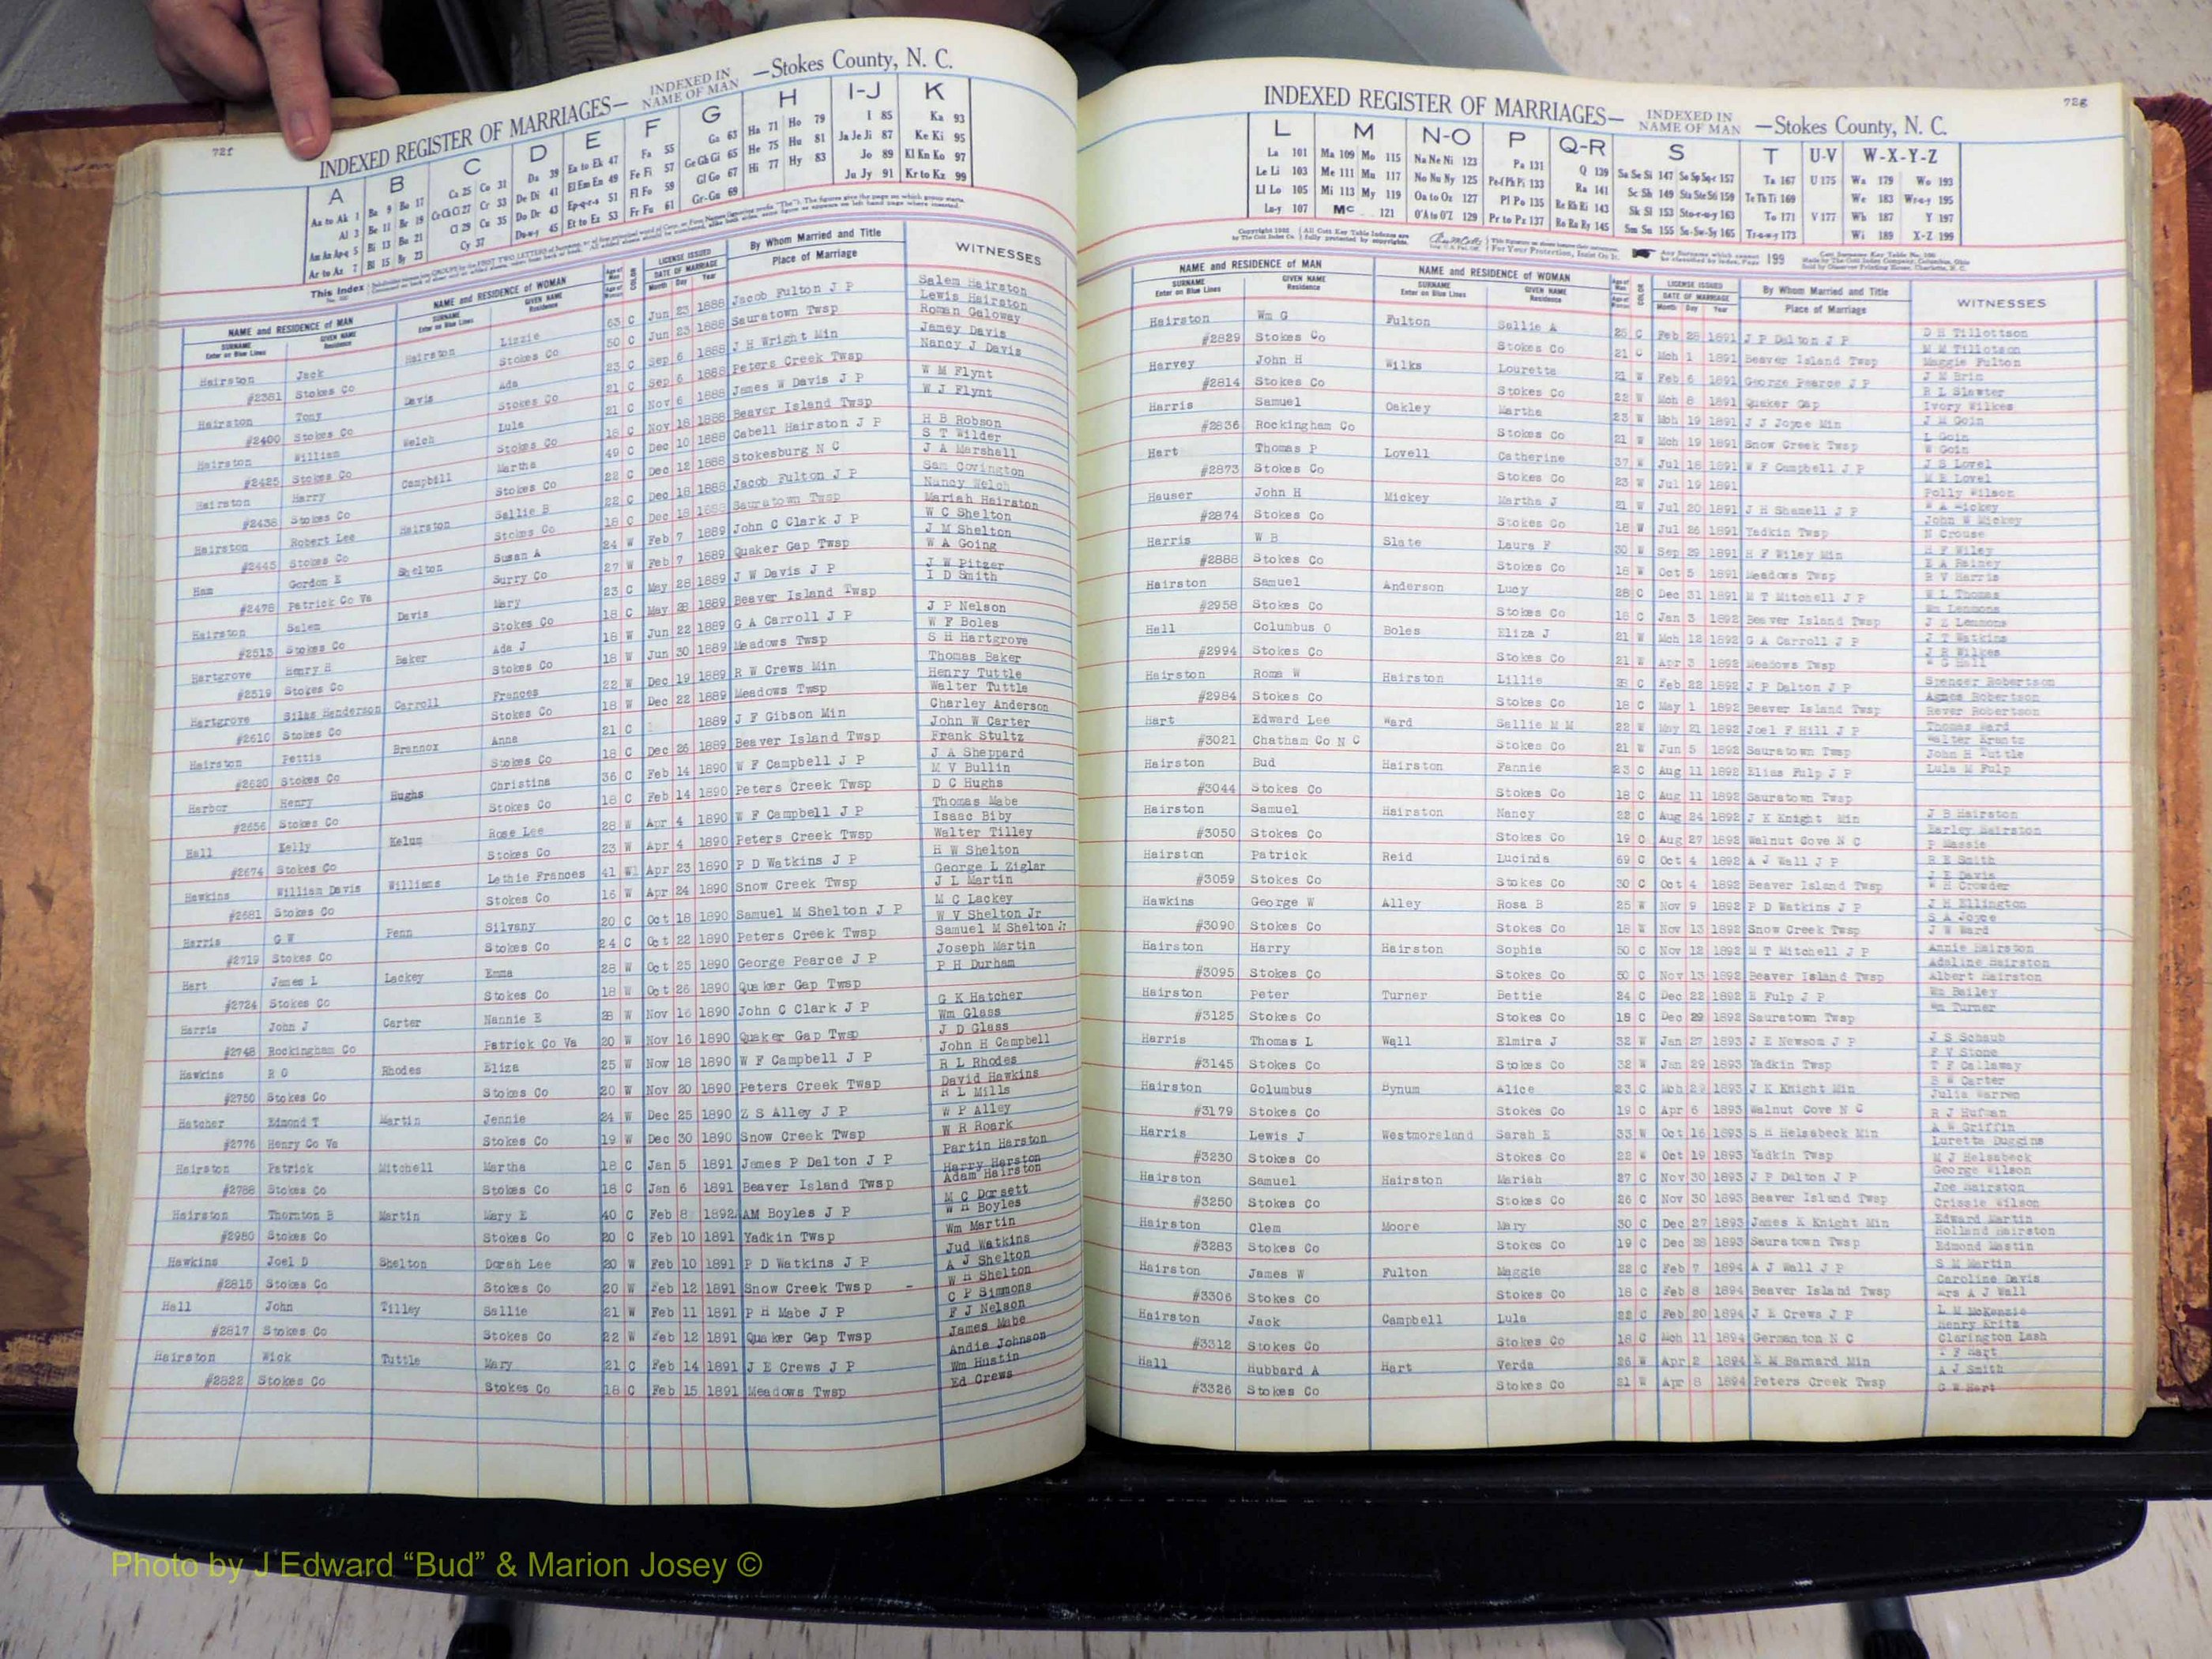 72f
INDEXED REGISTER OF MARRIAGES— INDEXED IN NAME OF MAN —Stokes County, N. C.
A B C D E F G H I-J K
This Index
NAME and RESIDENCE OF MAN NAME and RESIDENCE OF WOMAN LICENSE ISSUED DATE OF MARRIAGE By Whom Married and Title Place of Marriage WITNESSES
Hairston Jack Hairston Lizzie 63 C Jun 23 1888 Jacob Fulton J P Salem Hairston
#2381 Stokes Co Stokes Co 50 C Jun 23 1888 Sauratown Twsp Lewis Hairston
Hairston Tony Davis Ada 23 C Sep 6 1888 J H Wright Min Roman Galoway
#2400 Stokes Co Stokes Co 21 C Sep 6 1888 Peters Creek Twsp Jamey Davis
Nancy J Davis
Hairston William Welch Lula 21 C Nov 6 1888 James W Davis J P W M Flynt
#2425 Stokes Co Stokes Co 18 C Nov 18 1888 Beaver Island Twsp W J Flynt
Hairston Harry Campbill Martha 49 C Dec 10 1888 Cabell Hairston J P H B Robson
#2438 Stokes Co Stokes Co 22 C Dec 12 1888 Stokesburg N C S T Wilder
J A Marshall
Hairston Robert Lee Hairston Sallie B 22 C Dec 18 1888 Jacob Fulton J P Sam Covington
#2445 Stokes Co Stokes Co 18 C Dec 18 1888 Sauratown Twsp Nancy Welch
Mariah Hairston
Ham Gordon E Shelton Susan A 24 W Feb 7 1889 John C Clark J P W C Shelton
#2478 Patrick Co Va Surry Co 27 W Feb 7 1889 Quaker Gap Twsp J M Shelton
W A Going
Hairston Salem Davis Mary 23 C May 28 1889 J W Davis J P J W Pitzer
#2513 Stokes Co Stokes Co 18 C May 28 1889 Beaver Island Twsp I D Smith
Hartgrove Henry H Baker Ada J 18 W Jun 22 1889 G A Carroll J P J P Nelson
#2519 Stokes Co Stokes Co 18 W Jun 30 1889 Meadows Twsp W F Boles
S H Hartgrove
Hartgrove Silas Henderson Carroll Frances 22 W Dec 19 1889 R W Crews Min Thomas Baker
#2610 Stokes Co Stokes Co 18 W Dec 22 1889 Meadows Twsp Henry Tuttle
Walter Tuttle
Hairston Pettis Brannox Anna 21 C 1889 J F Gibson Min Charley Anderson
#2620 Stokes Co Stokes Co 18 C Dec 26 1889 Beaver Island Twsp John W Carter
Frank Stultz
Harbor Henry Hughs Christina 36 C Feb 14 1890 W F Campbell J P J A Sheppard
#2656 Stokes Co Stokes Co 18 C Feb 14 1890 Peters Creek Twsp M V Bullin
D C Hughs
Hall Kelly Kelum Rose Lee 28 W Apr 4 1890 W F Campbell J P Thomas Mabe
#2674 Stokes Co Stokes Co 23 W Apr 4 1890 Peters Creek Twsp Isaac Biby
Walter Tilley
Hawkins William Davis Williams Lethie Frances 41 W Apr 23 1890 P D Watkins J P H W Shelton
#2681 Stokes Co Stokes Co 16 W Apr 24 1890 Snow Creek Twsp George L Ziglar
J L Martin
Harris G W Penn Silvany 20 C Oct 18 1890 Samuel M Shelton J P M C Lackey
#2719 Stokes Co Stokes Co 24 C Oct 22 1890 Peters Creek Twsp W V Shelton Jr
Samuel M Shelton Jr
Hart James L Lackey Emma 28 W Oct 25 1890 George Pearce J P Joseph Martin
#2724 Stokes Co Stokes Co 18 W Oct 26 1890 Quaker Gap Twsp P H Durham
Harris John J Carter Nannie E 28 W Nov 16 1890 John C Clark J P G K Hatcher
#2748 Rockingham Co Patrick Co Va 20 W Nov 16 1890 Quaker Gap Twsp Wm Glass
J D Glass
Hawkins R O Rhodes Eliza 25 W Nov 18 1890 W F Campbell J P John H Campbell
#2750 Stokes Co Stokes Co 20 W Nov 20 1890 Peters Creek Twsp R L Rhodes
David Hawkins
Hatcher Edmond T Martin Jennie 24 W Dec 25 1890 Z S Alley J P R L Mills
#2776 Henry Co Va Stokes Co 19 W Dec 30 1890 Snow Creek Twsp W P Alley
W R Roark
Hairston Patrick Mitchell Martha 18 C Jan 5 1891 James P Dalton J P Partin Harston
#2788 Stokes Co Stokes Co 18 C Jan 6 1891 Beaver Island Twsp Harry Herston
Adam Hairston
Hairston Thornton B Martin Mary E 40 C Feb 8 1892 AM Boyles J P M C Dorsett
#2980 Stokes Co Stokes Co 20 C Feb 10 1891 Yadkin Twsp W A Boyles
Wm Martin
Hawkins Joel D Shelton Dorah Lee 20 W Feb 10 1891 P D Watkins J P Jud Watkins
#2815 Stokes Co Stokes Co 20 W Feb 12 1891 Snow Creek Twsp - A J Shelton
W H Shelton
Hall John Tilley Sallie 21 W Feb 11 1891 P H Mabe J P C P Simmons
#2817 Stokes Co Stokes Co 22 W Feb 12 1891 Quaker Gap Twsp F J Nelson
James Mabe
Hairston Wick Tuttle Mary 21 C Feb 14 1891 J E Crews J P Andie Johnson
#2822 Stokes Co Stokes Co 18 C Feb 15 1891 Meadows Twsp Wm Hustin
Ed Crews
72g
INDEXED REGISTER OF MARRIAGES— INDEXED IN NAME OF MAN —Stokes County, N. C.
L M N-O P Q-R S T U-V W-X-Y-Z
La 101 Ma 109 Mo 115 Na Ne Ni 123 Pa 131 Q 139 Sa Se Si 147 Sp Sq 157 Ta 167 U 175 Wa 179 Wo 193
Le Li 103 Me 111 Mu 117 No Nu Ny 125 Ra 141 Sc Sh 149 Te Th Ti 169 We 183 195
Ll Lo 105 Mi 113 My 119 Oa to Oz 127 Pl Po 135 Re Rh Ri 143 Sk Sl 153 To 171 V 177 Wh 187 Y 197
107 Mc 121 O'A to O'Z 129 Pr to Pz 137 Ro Ru Ry 145 Sm Sn 155 173 Wi 189 X-Z 199
NAME and RESIDENCE OF MAN NAME and RESIDENCE OF WOMAN LICENSE ISSUED DATE OF MARRIAGE By Whom Married and Title Place of Marriage WITNESSES
Hairston Wm G Fulton Sallie A 25 C Feb 28 1891 J P Dalton J P D H Tillottson
#2829 Stokes Co Stokes Co 21 C Mch 1 1891 Beaver Island Twsp M M Tillotson
Maggie Fulton
Harvey John H Wilks Louretta 21 W Feb 6 1891 George Pearce J P J M Brin
#2814 Stokes Co Stokes Co 22 W Mch 8 1891 Quaker Gap R L Slawter
Ivory Wilkes
Harris Samuel Oakley Martha 23 W Mch 19 1891 J J Joyce Min J M Goin
#2836 Rockingham Co Stokes Co 21 W Mch 19 1891 Snow Creek Twsp L Goin
W Goin
Hart Thomas P Lovell Catherine 37 W Jul 18 1891 W F Campbell J P J S Lovel
#2873 Stokes Co Stokes Co 23 W Jul 19 1891 M E Lovel
Polly Wilson
Hauser John H Mickey Martha J 21 W Jul 20 1891 J H Shamell J P W A Mickey
#2874 Stokes Co Stokes Co 18 W Jul 26 1891 Yadkin Twsp John W Mickey
N Crouse
Harris W B Slate Laura F 30 W Sep 29 1891 H F Wiley Min H F Wiley
#2888 Stokes Co Stokes Co 18 W Oct 5 1891 Meadows Twsp E A Rainey
R V Harris
Hairston Samuel Anderson Lucy 28 C Dec 31 1891 M T Mitchell J P W L Thomas
#2958 Stokes Co Stokes Co 18 C Jan 3 1892 Beaver Island Twsp Wm Lemmons
J E Lemmons
Hall Columbus O Boles Eliza J 21 W Mch 12 1892 G A Carroll J P J T Watkins
#2994 Stokes Co Stokes Co 21 W Apr 3 1892 Meadows Twsp J R Wilkes
W G Hall
Hairston Roma W Hairston Lillie 28 C Feb 22 1892 J P Dalton J P Spencer Robertson
#2984 Stokes Co Stokes Co 18 C May 1 1892 Beaver Island Twsp Agnes Robertson
Rever Robertson
Hart Edward Lee Ward Sallie M M 22 W May 21 1892 Joel F Hill J P Thomas Ward
#3021 Chatham Co N C Stokes Co 21 W Jun 5 1892 Sauratown Twsp Walter Krantz
John H Tuttle
Hairston Bud Hairston Fannie 23 C Aug 11 1892 Elias Fulp J P Lula M Fulp
#3044 Stokes Co Stokes Co 18 C Aug 11 1892 Sauratown Twsp
Hairston Samuel Hairston Nancy 22 C Aug 24 1892 J K Knight Min J B Hairston
#3050 Stokes Co Stokes Co 19 C Aug 27 1892 Walnut Cove N C Harley Hairston
P Massie
Hairston Patrick Reid Lucinda 69 C Oct 4 1892 A J Wall J P R E Smith
#3059 Stokes Co Stokes Co 30 C Oct 4 1892 Beaver Island Twsp J E Davis
W H Crowder
Hawkins George W Alley Rosa B 25 W Nov 9 1892 P D Watkins J P J H Ellington
#3090 Stokes Co Stokes Co 18 W Nov 13 1892 Snow Creek Twsp S A Joyce
J W Ward
Hairston Harry Hairston Sophia 50 C Nov 12 1892 M T Mitchell J P Annie Hairston
#3095 Stokes Co Stokes Co 50 C Nov 13 1892 Beaver Island Twsp Adaline Hairston
Albert Hairston
Hairston Peter Turner Bettie 24 C Dec 22 1892 E Fulp J P Wm Bailey
#3125 Stokes Co Stokes Co 18 C Dec 29 1892 Sauratown Twsp Wm Turner
Harris Thomas L Wall Elmira J 32 W Jan 27 1893 J E Newsom J P J S Schaub
#3145 Stokes Co Stokes Co 32 W Jan 29 1893 Yadkin Twsp P V Stone
T F Callaway
Hairston Columbus Bynum Alice 23 C Mch 29 1893 J K Knight Min B W Carter
#3179 Stokes Co Stokes Co 19 C Apr 6 1893 Walnut Cove N C Julia Warren
R J Hufman
Harris Lewis J Westmoreland Sarah E 33 W Oct 16 1893 S H Helsabeck Min A W Griffin
#3230 Stokes Co Stokes Co 22 W Oct 19 1893 Yadkin Twsp Luretta Duggins
M J Helsabeck
Hairston Samuel Hairston Mariah 27 C Nov 30 1893 J P Dalton J P George Wilson
#3250 Stokes Co Stokes Co 26 C Nov 30 1893 Beaver Island Twsp Joe Hairston
Crissie Wilson
Hairston Clem Moore Mary 30 C Dec 27 1893 James K Knight Min Edward Martin
#3283 Stokes Co Stokes Co 19 C Dec 28 1893 Sauratown Twsp Holland Hairston
Edmond Mastin
Hairston James W Fulton Maggie 22 C Feb 7 1894 A J Wall J P S M Martin
#3306 Stokes Co Stokes Co 18 C Feb 8 1894 Beaver Island Twsp Caroline Davis
Mrs A J Wall
Hairston Jack Campbell Lula 22 C Feb 20 1894 J E Crews J P L M McKenzie
#3312 Stokes Co Stokes Co 18 C Mch 11 1894 Germanton N C Henry Kritz
Clarington Lash
Hall Hubbard A Hart Verda 26 W Apr 2 1894 E M Barnard Min T F Hart
#3326 Stokes Co Stokes Co 21 W Apr 8 1894 Peters Creek Twsp A J Smith
G W Hart
Photo by J Edward “Bud” & Marion Josey ©